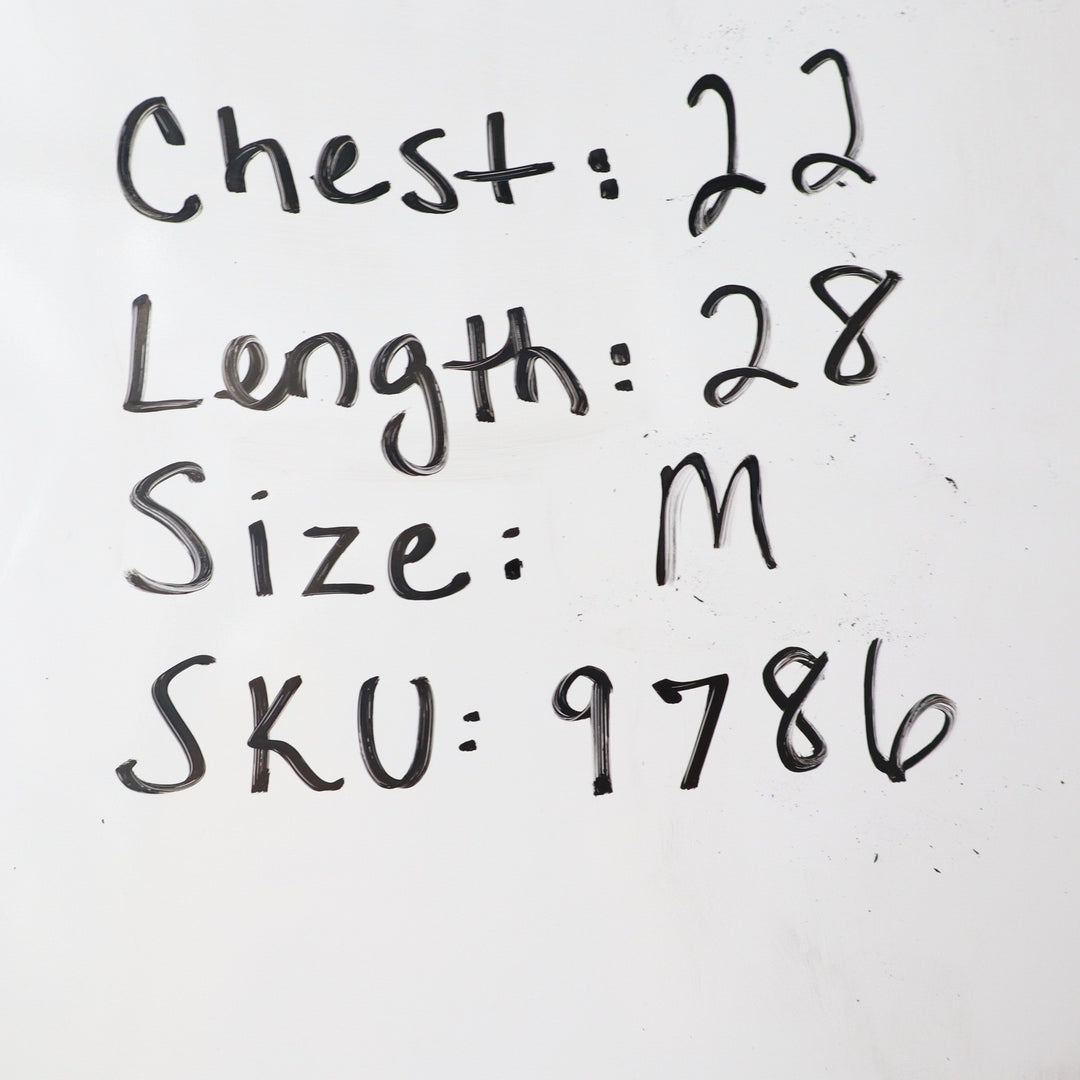 Chest: 22
Length: 28
Size: M
SKU: 9786